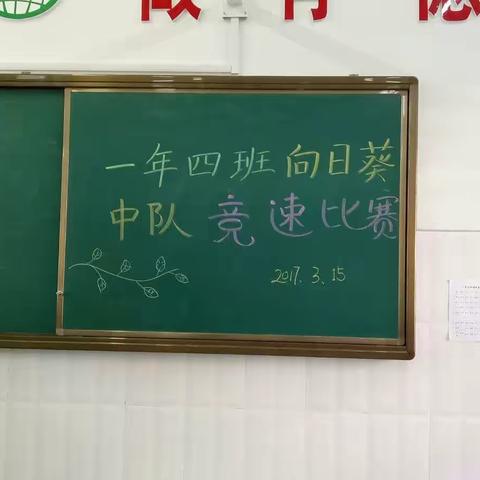 一年四班向日葵
中队竞速比赛
2017.3.15